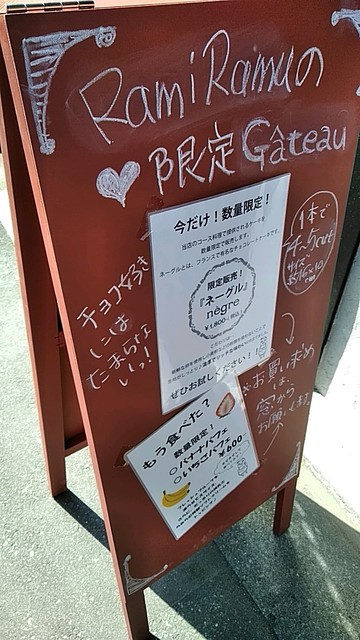 RamiRamuの
限定 Gâteau
今だけ！数量限定！
当店のコース料理で提供されるケーキを
数量限定で販売します。
ネーグルとは、フランスで有名なチョコレートケーキです。
限定販売！
『ネーグル』
nègre
￥1,800-
ぜひお試しください！！
チョコ好き
には
たまらな
いっ！
1本で
サイズ
お買い求め
は、
窓から
お願いします
もう食べた？
数量限定！
○バナナパフェ
○いちごパフェ
￥600-